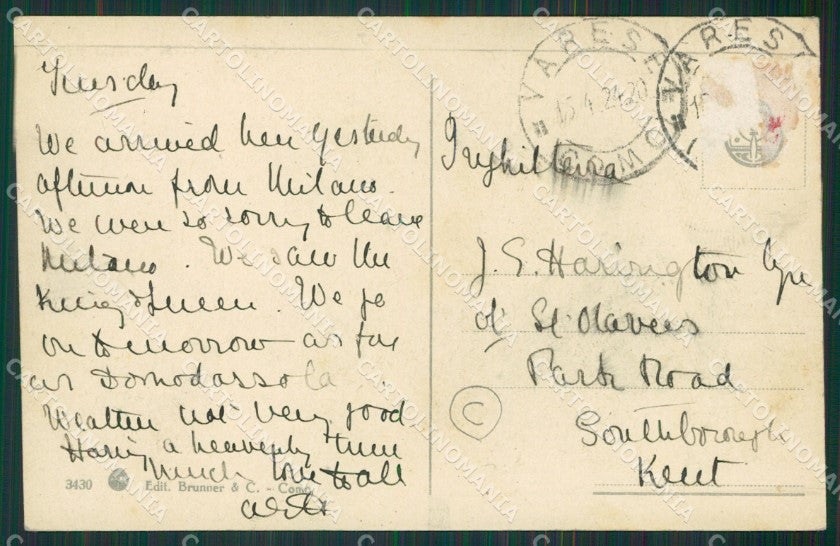 Tuesday
We arrived here yesterday
afternoon from Milano.
We were so sorry to leave
Milano. We saw the
King & Queen. We go
on tomorrow as far
as Domodossola.
Weather not very good
Having a heavenly time
Much love to all
3430 Edit. Brunner & C. - Como
VARES
15.4.24.20
COMO
VARES
15
Inghilterra
J. S. Harington Esq
St Olaves
Park Road
Southborough
Kent
C
CARTOLINOMANIA